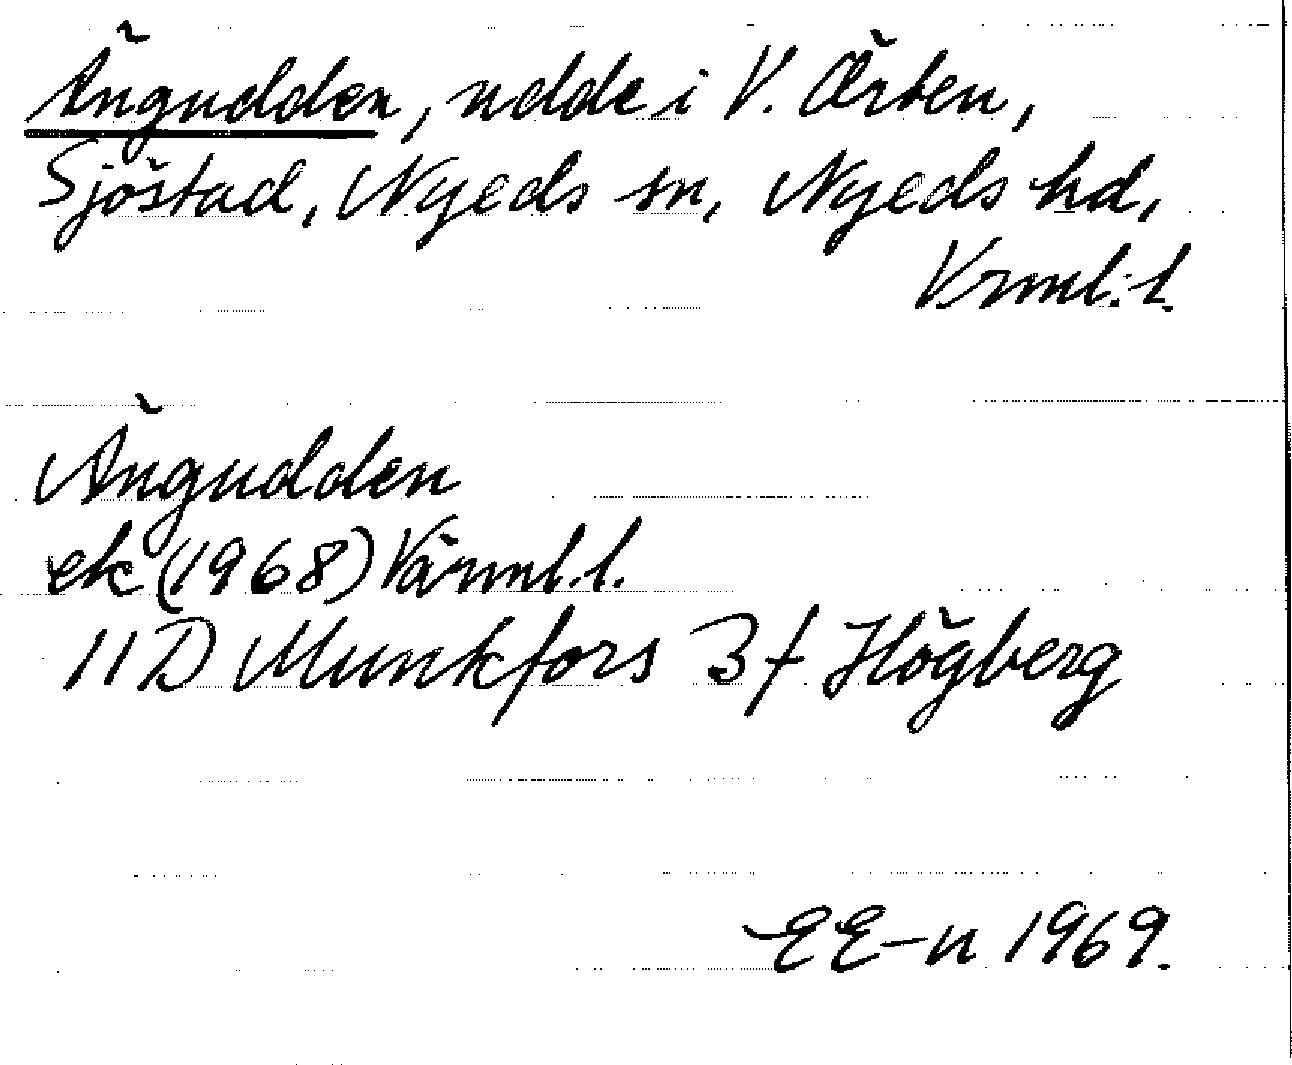 Ängudden, udde i V. Örten,
Sjöstad, Nyeds sn, Nyeds hd,
Vrml:l.
Ängudden
ek (1968) Värml.l.
11D Munkfors 3f Högberg
EE-n 1969.